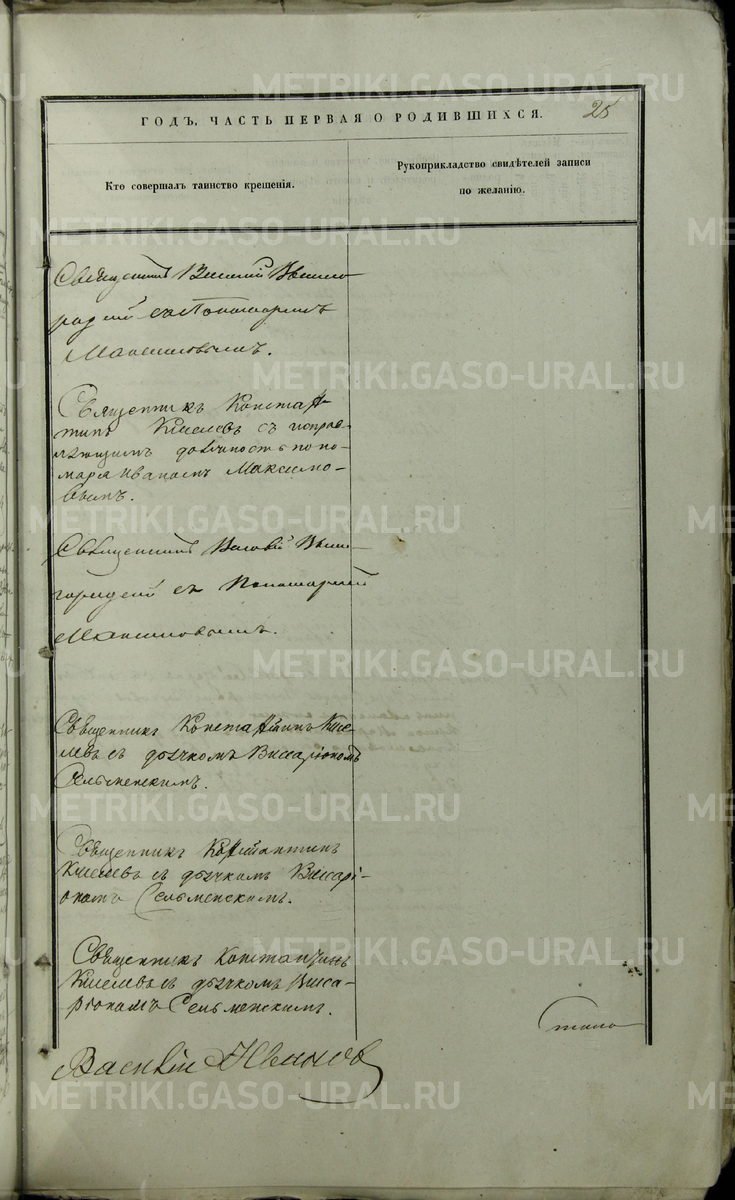 25
ГОДЪ, ЧАСТЬ ПЕРВАЯ О РОДИВШИХСЯ.
Кто совершалъ таинство крещенія.
Рукоприкладство свидѣтелей записи
по желанію.
Священникъ
Максимовымъ.
Священникъ Констан
тинъ Киселевъ съ исправ
ляющимъ должность поно
маря Иваномъ Максимо-
вымъ.
Священникъ
съ Пономаремъ
Максимовымъ.
Священникъ Константинъ Кисе-
левъ съ дьячкомъ Виссаріономъ
Сельменскимъ.
Священникъ Константинъ
Киселевъ съ дьячкомъ Виссарі-
ономъ Сельменскимъ.
Священникъ Константинъ
Киселевъ съ дьячкомъ Висса-
ріономъ Сельменскимъ.
Василій
METRIKI.GASO-URAL.RU